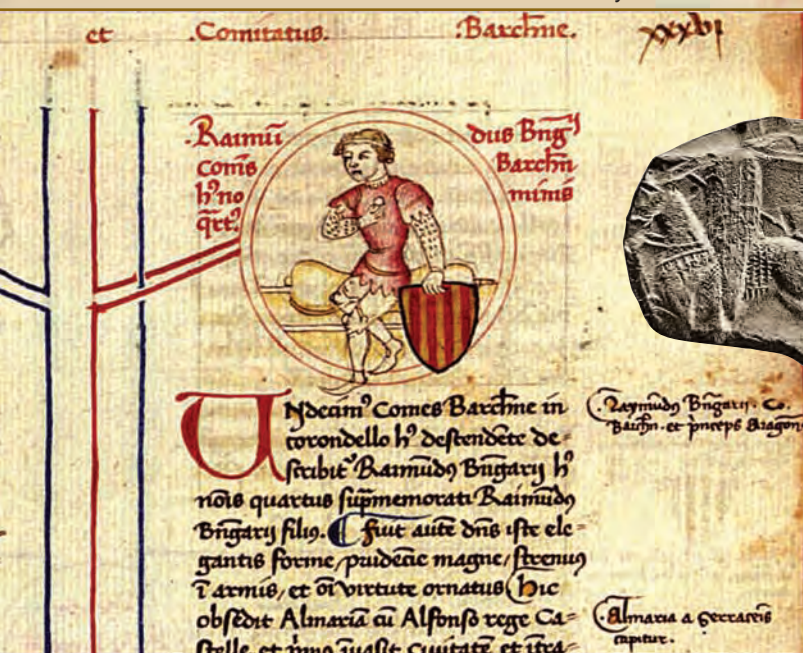 et .Comitatus. .Barchn̄e. xxxvi
.Raimū dus Bn̄g
Comīs Barchn̄
hꝰno minis
q̄rtꝰ.
UNdecimꝰ Comes Barchn̄e in
corondello hꝰ descendēte de=
scribitꝰ Raimūdꝰ Bn̄garij hꝰ
nōis quartus sup̄memorati Raimūdꝰ
Bn̄garij filiꝰ. Fuit autē dn̄s iste ele=
gantis forme, prudēcie magne, strenuꝰ
ī armis, et oī virtute ornatus hic
obsedit Almariā cū Alfonso rege Ca=
stelle et īvasit Civitatē et
.Raymūdꝰ Bn̄garij. Co.
Barchn̄. et pn̄ceps Aragon
.Almaria a serraceīs
capitur.